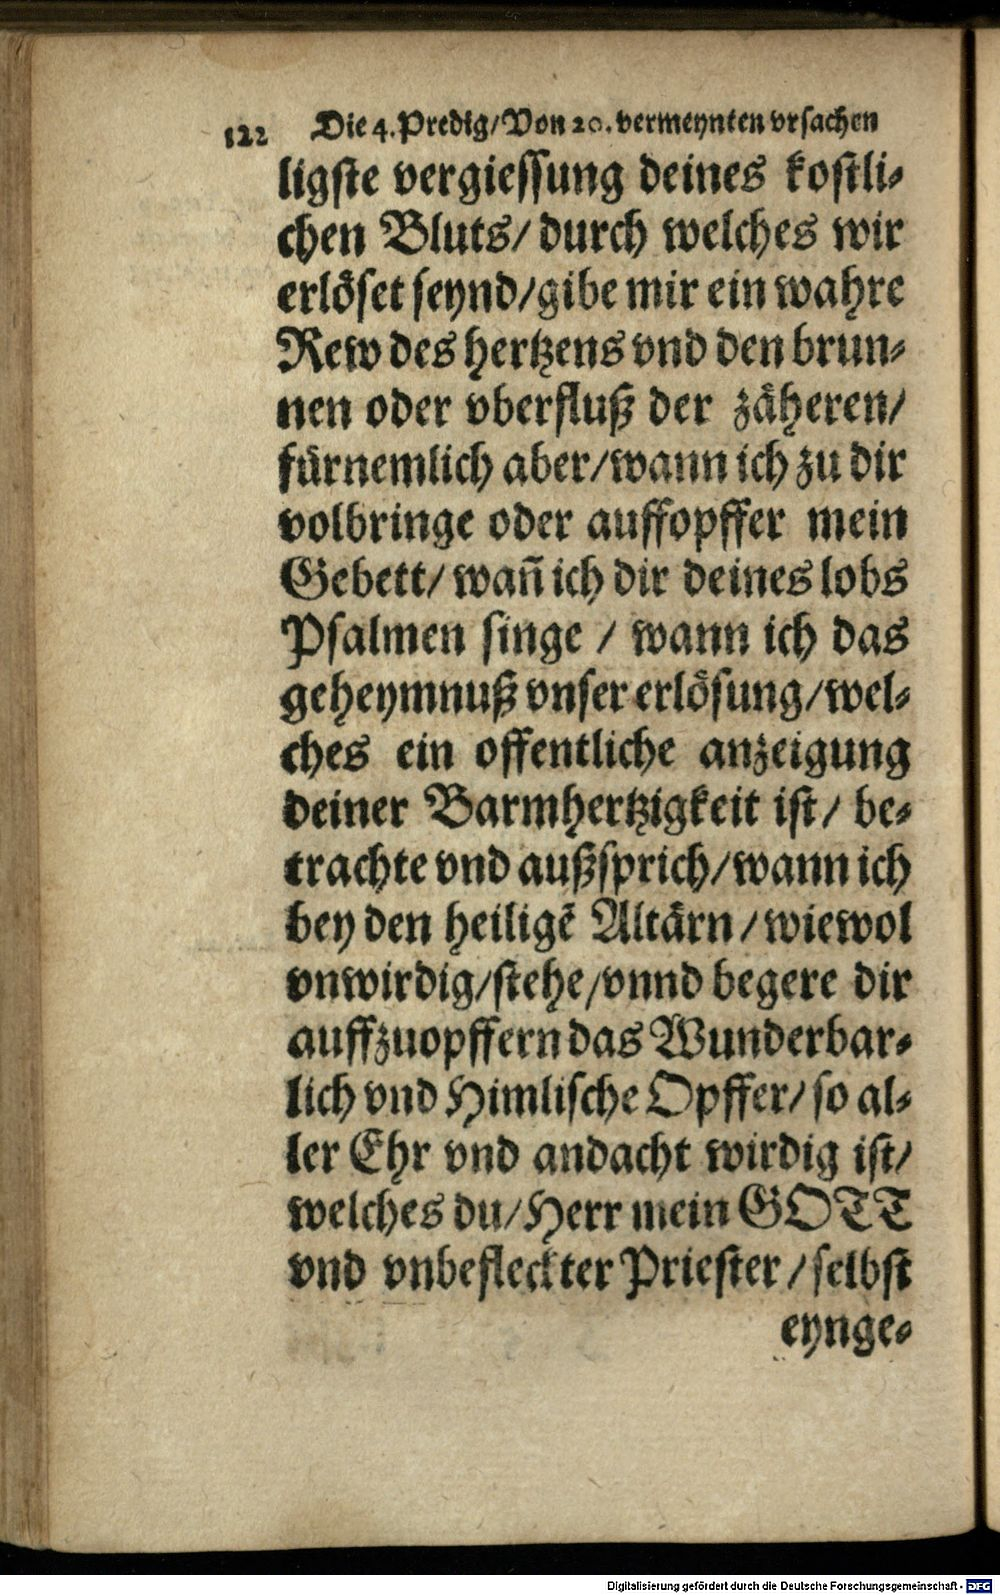 122 Die 4. Predig/Von 20. vermeynten vrsachen
ligste vergiessung deines kostli-
chen Bluts/ durch welches wir
erlöset seynd/gibe mir ein wahre
Rew des hertzens vnd den brun-
nen oder vberfluß der zäheren/
fürnemlich aber/wann ich zu dir
volbringe oder auffopffer mein
Gebett/ wañ ich dir deines lobs
Psalmen singe / wann ich das
geheymnuß vnser erlösung/wel-
ches ein offentliche anzeigung
deiner Barmhertzigkeit ist/ be-
trachte vnd außsprich/wann ich
bey den heiligẽ Altärn/wiewol
vnwirdig/stehe/vnnd begere dir
auffzuopffern das Wunderbar-
lich vnd Himlische Opffer/ so al-
ler Ehr vnd andacht wirdig ist/
welches du/Herr mein GOTT
vnd vnbefleckter Priester/selbst
eynge-
Digitalisierung gefördert durch die Deutsche Forschungsgemeinschaft - DFG